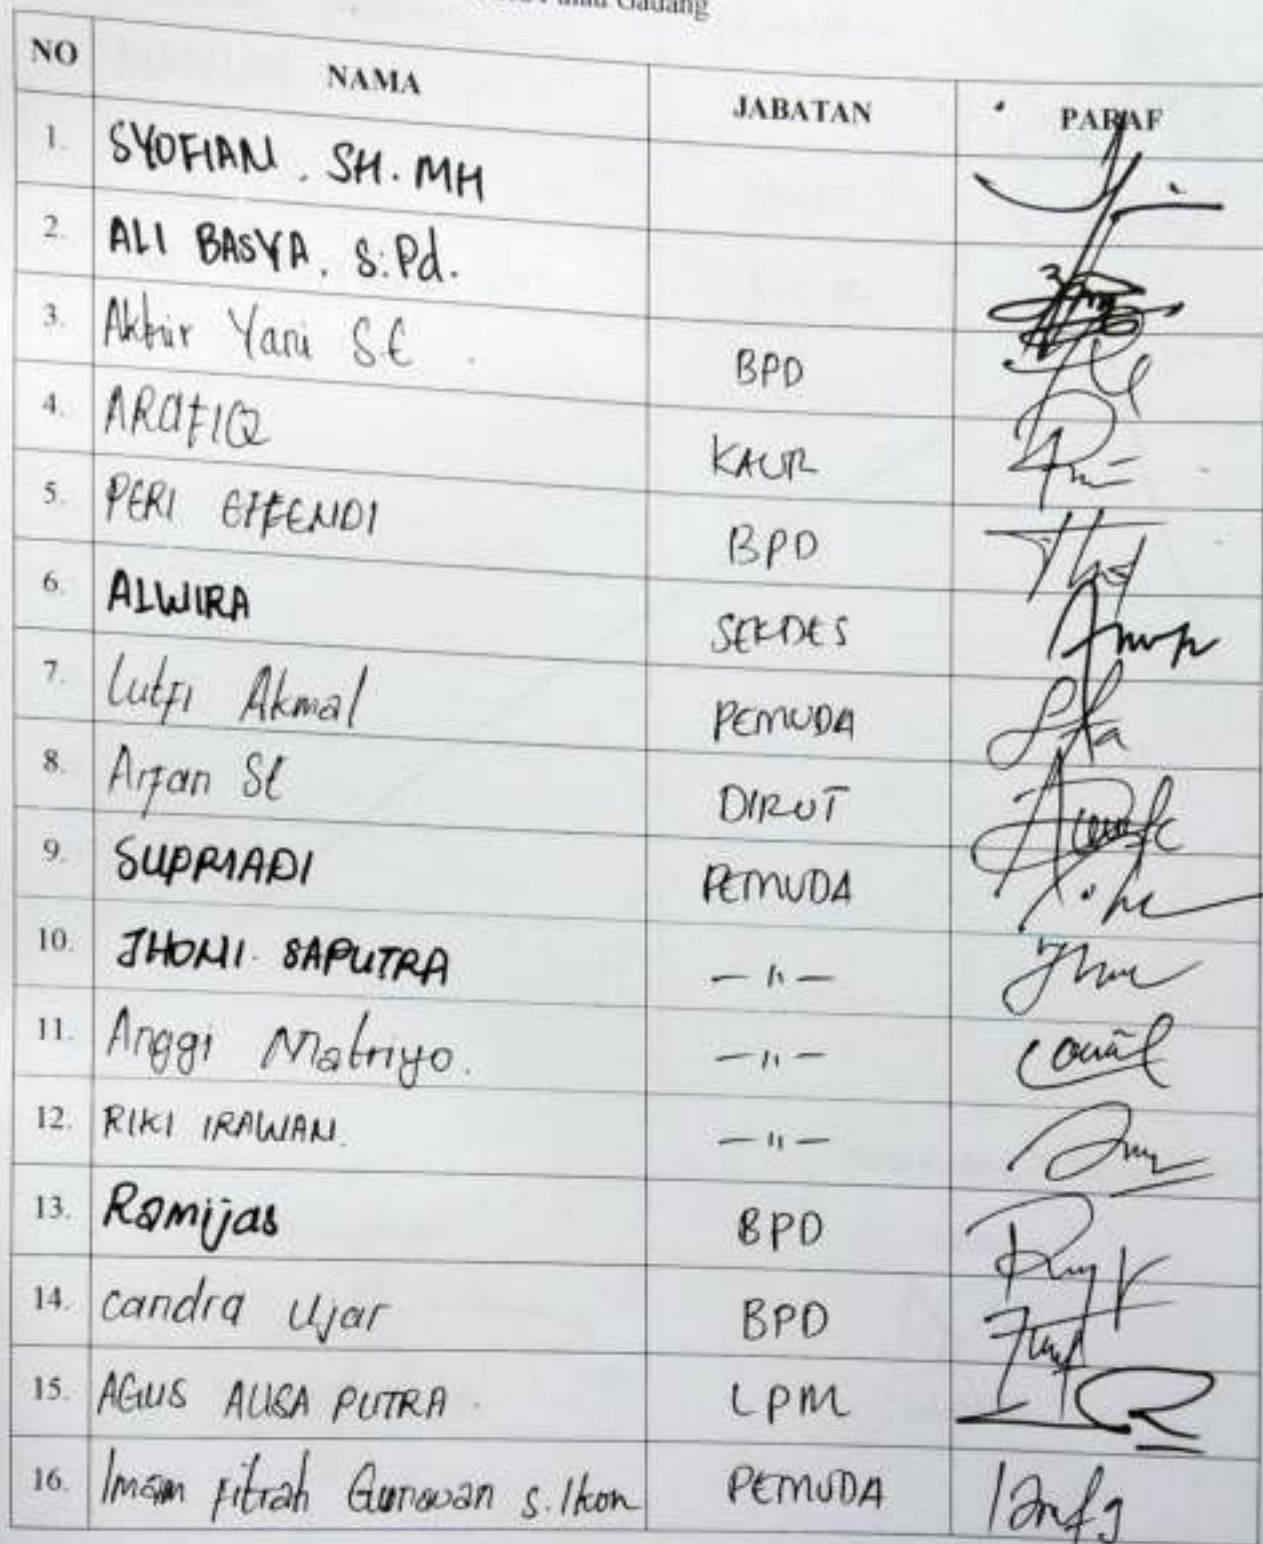 Pulau Gadang
NO NAMA JABATAN PARAF
1. SYOFIAN . SH. MH
2. ALI BASYA . S.Pd.
3. Akbir Yani SE . BPD
4. ARAFIQ KAUR
5. PERI EFFENDI BPD
6. ALWIRA SEKDES
7. Lutfi Akmal PEMUDA
8. Arfan SE DIRUT
9. SUPRIADI PEMUDA
10. JHONI SAPUTRA — 11 —
11. Anggi Matriyo. — 11 —
12. RIKI IRAWAN. — 11 —
13. Ramijas BPD
14. Candra Ujar BPD
15. AGUS ALISA PUTRA . LPM
16. Imam Fitrah Gunawan S.Ikom PEMUDA